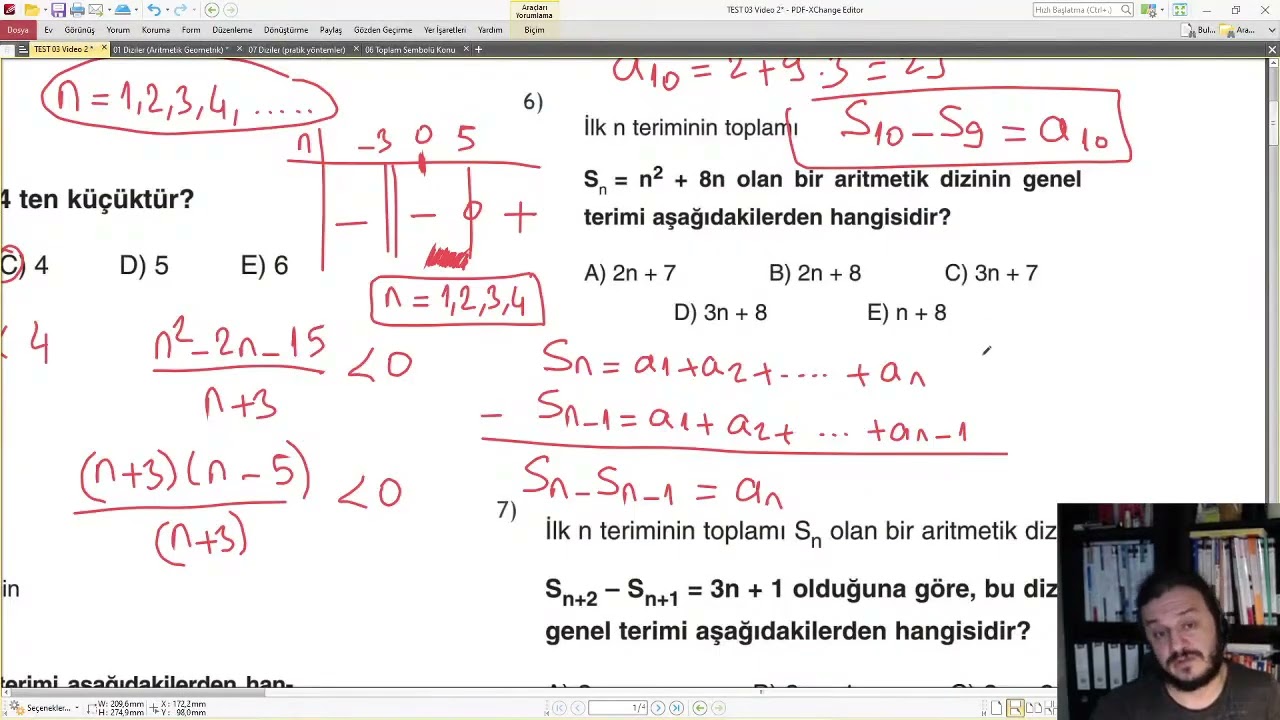 Araçları
Yorumlama
TEST 03 Video 2* - PDF-XChange Editor
Hızlı Başlatma (Ctrl+.)
Dosya Ev Görünüş Yorum Koruma Form Düzenleme Dönüştürme Paylaş Gözden Geçirme Yer İşaretleri Yardım Biçim Bul... Ara...
TEST 03 Video 2 * 01 Diziler (Aritmetik Geometrik) * 07 Diziler (pratik yöntemler) * 06 Toplam Sembolü Konu.
n = 1,2,3,4, .....
n -3 0 5
- - 0 +
4 ten küçüktür?
C) 4 D) 5 E) 6
n = 1,2,3,4
< 4
n² - 2n - 15 < 0
n+3
(n+3)(n-5) < 0
(n+3)
in
terimi aşağıdakilerden han-
a10 = 2 + 9 . 3 = 29
6)
İlk n teriminin toplamı
S10 - S9 = a10
Sn = n² + 8n olan bir aritmetik dizinin genel
terimi aşağıdakilerden hangisidir?
A) 2n + 7 B) 2n + 8 C) 3n + 7
D) 3n + 8 E) n + 8
Sn = a1 + a2 + .... + an
- Sn-1 = a1 + a2 + ... + an-1
Sn - Sn-1 = an
7)
İlk n teriminin toplamı Sn olan bir aritmetik diz
Sn+2 – Sn+1 = 3n + 1 olduğuna göre, bu diz
genel terimi aşağıdakilerden hangisidir?
Seçenekler...
W: 209,6mm
H: 274,9mm
X: 172,2mm
Y: 98,0mm
1/4